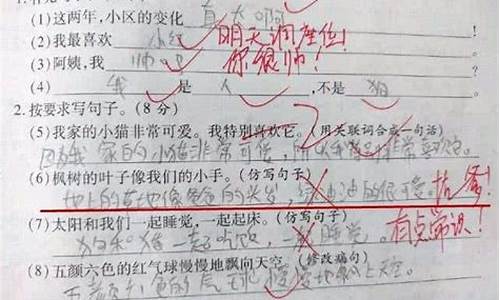 (1)这两年,小区的变化真大啊
(2)我最喜欢 小红 明天调座位!
(3)阿姨,我 帅吧 你很帅!
(4) 我 是 人 ,不是 狗
2.按要求写句子。(8 分)
(5)我家的小猫非常可爱。我特别喜欢它。(用关联词合成一句话)
因为我家的小猫非常可爱,所以我 非常喜欢它。
(6)枫树的叶子像我们的小手。(仿写句子)
地上的草地像爸爸的头发,绿油油的很可爱。
(7)太阳和我们一起睡觉,一起起床。(仿写句子)
狗和猪一起吃饭,一起睡觉。 有点常识!
(8)五颜六色的红气球慢慢地飘向天空。(修改病句)
五颜六色的气球慢慢地飘上天空。